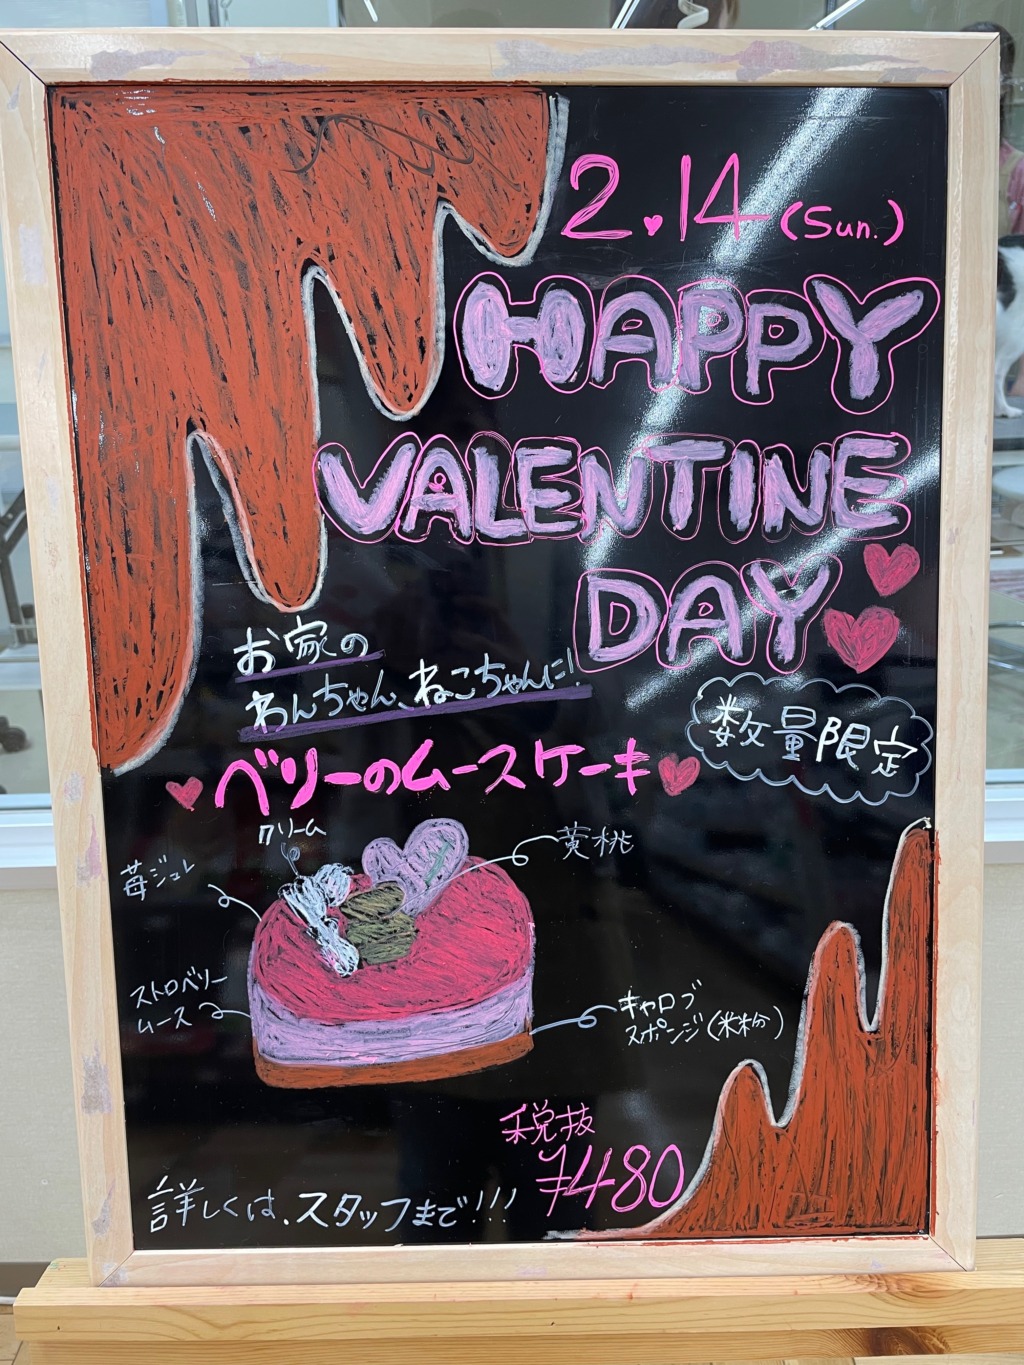 2.14 (Sun.)
HAPPY
VALENTINE
DAY
お家の
わんちゃん、ねこちゃんに!
数量限定
ベリーのムースケーキ
クリーム
黄桃
苺ジュレ
ストロベリー
ムース
キャロブ
スポンジ(米粉)
税抜
¥480
詳しくは、スタッフまで!!!